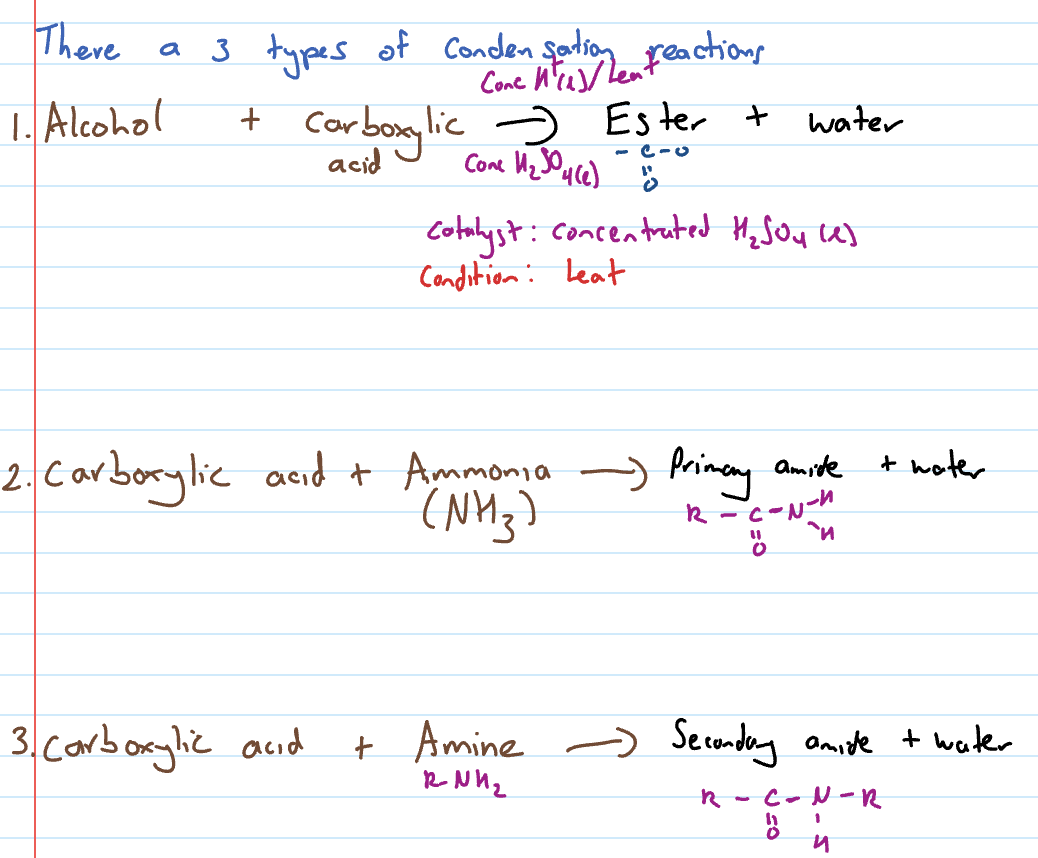 There a 3 types of Condensation reactions
Conc H⁺(l)/heat
1. Alcohol + Carboxylic acid → Ester + water
Conc H₂SO₄(l)
- C - O
॥
O
Catalyst: Concentrated H₂SO₄ (l)
Condition: heat
2. Carboxylic acid + Ammonia → Primary amide + water
(NH₃)
R - C - N - H
॥ \ H
O
3. Carboxylic acid + Amine → Secondary amide + water
R-NH₂
R - C - N - R
॥ |
O H